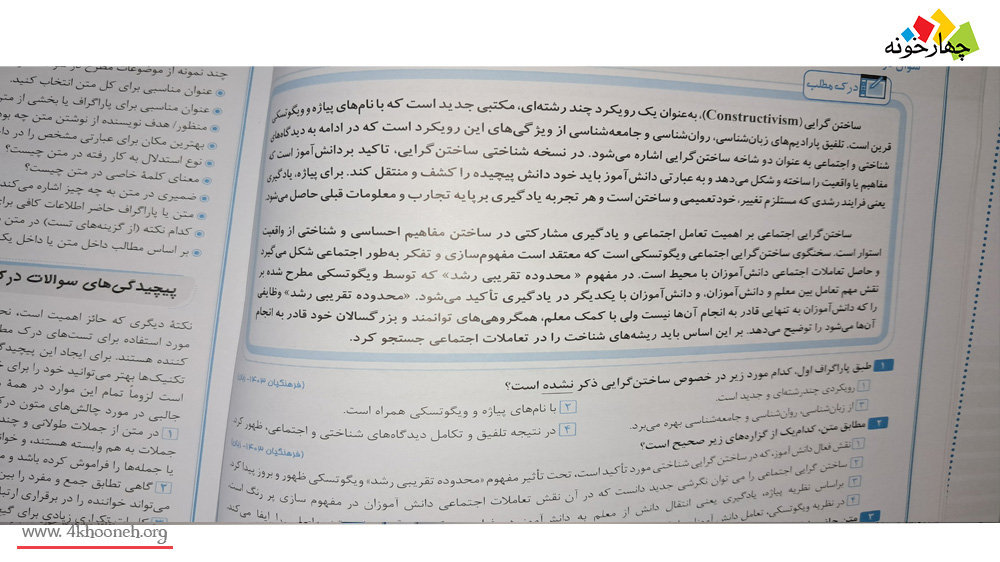 چهارخونه
درک مطلب
ساختن گرایی (Constructivism)، به‌عنوان یک رویکرد چند رشته‌ای، مکتبی جدید است که با نام‌های پیاژه و ویگوتسکی
قرین است. تلفیق پارادیم‌های زبان‌شناسی، روان‌شناسی و جامعه‌شناسی از ویژگی‌های این رویکرد است که در ادامه به دیدگاه‌های
شناختی و اجتماعی به عنوان دو شاخه ساختن‌گرایی اشاره می‌شود. در نسخه شناختی ساختن‌گرایی، تاکید بر دانش‌آموز است که
مفاهیم یا واقعیت را ساخته و شکل می‌دهد و به عبارتی دانش‌آموز باید خود دانش پیچیده را کشف و منتقل کند. برای پیاژه، یادگیری
یعنی فرایند رشدی که مستلزم تغییر، خود‌تعمیمی و ساختن است و هر تجربه یادگیری بر پایه تجارب و معلومات قبلی حاصل می‌شود.
ساختن‌گرایی اجتماعی بر اهمیت تعامل اجتماعی و یادگیری مشارکتی در ساختن مفاهیم احساسی و شناختی از واقعیت
استوار است. سخنگوی ساختن‌گرایی اجتماعی ویگوتسکی است که معتقد است مفهوم‌سازی و تفکر به‌طور اجتماعی شکل می‌گیرد
و حاصل تعاملات اجتماعی دانش‌آموزان با محیط است. در مفهوم «محدوده تقریبی رشد» که توسط ویگوتسکی مطرح شده بر
نقش مهم تعامل بین معلم و دانش‌آموزان، و دانش‌آموزان با یکدیگر در یادگیری تأکید می‌شود. «محدوده تقریبی رشد» وظایفی
را که دانش‌آموزان به تنهایی قادر به انجام آن‌ها نیست ولی با کمک معلم، همگروهی‌های توانمند و بزرگسالان خود قادر به انجام
آن‌ها می‌شود را توضیح می‌دهد. بر این اساس باید ریشه‌های شناخت را در تعاملات اجتماعی جستجو کرد.
۱ طبق پاراگراف اول، کدام مورد زیر در خصوص ساختن‌گرایی ذکر نشده است؟ (فرهنگیان ۱۴۰۳-
۱ رویکردی چند رشته‌ای و جدید است.
۲ با نام‌های پیاژه و ویگوتسکی همراه است.
۳ از زبان‌شناسی، روان‌شناسی و جامعه‌شناسی بهره می‌برد.
۴ در نتیجه تلفیق و تکامل دیدگاه‌های شناختی و اجتماعی، ظهور کرد
۲ مطابق متن، کدام‌یک از گزاره‌های زیر صحیح است؟ (فرهنگیان ۱۴۰۳-
۱ نقش فعال دانش‌آموز، که در ساختن گرایی شناختی مورد تأکید است، تحت تأثیر مفهوم «محدوده تقریبی رشد» ویگوتسکی ظهور و بروز پیدا کرد
۲ ساختن گرایی اجتماعی را می توان نگرشی جدید دانست که در آن نقش تعاملات اجتماعی دانش آموزان در مفهوم سازی پر رنگ است
۳ براساس نظریه پیاژه، یادگیری یعنی انتقال دانش از معلم به دانش
۴ در نظریه ویگوتسکی، تعامل دانش‌آموز
ایفا می‌کند
۳
چند نمونه از موضوعات مطرح
عنوان مناسبی برای کل متن انتخاب کنید.
عنوان مناسبی برای پاراگراف یا بخشی از متن
منظور/ هدف نویسنده از نوشتن متن چه بود
بهترین مکان برای عبارتی مشخص را در
نوع استدلال به کار رفته در متن چیست؟
معنای کلمهٔ خاصی در متن چیست؟
ضمیری در متن به چه چیز اشاره می‌کند
متن یا پاراگراف حاضر اطلاعات کافی برای
کدام نکته (از گزینه‌های تست) در متن
بر اساس مطالب داخل متن یا داخل یک
پیچیدگی‌های سوالات درک
نکتهٔ دیگری که حائز اهمیت است،
مورد استفاده برای تست‌های درک
کننده هستند. برای ایجاد این پیچیدگی
تکنیک‌ها بهتر می‌توانید خود را برای
است لزوماً تمام این موارد در همهٔ
جالبی در مورد چالش‌های متون درک
۱ در متن از جملات طولانی و چند
جملات به هم وابسته هستند، و خوان
یا جمله‌ها را فراموش کرده باشد و
۲ گاهی تطابق جمع و مفرد را بین
می‌تواند خواننده را در برقراری ارتباط
www.4khooneh.org